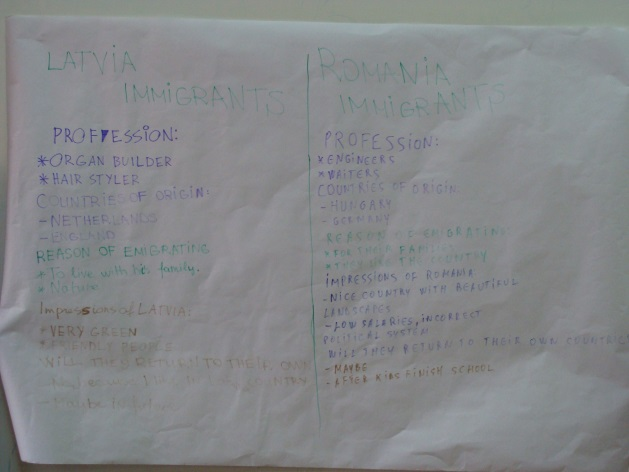 LATVIA
IMMIGRANTS
PROFFESSION:
*ORGAN BUILDER
*HAIR STYLER
COUNTRIES OF ORIGIN:
-NETHERLANDS
-ENGLAND
REASON OF EMIGRATING
* To live with his family.
* Nature
Impressions of LATVIA:
*VERY GREEN
*FRIENDLY PEOPLE
WILL THEY RETURN TO THEIR OWN
COUNTRY
- Maybe in
ROMANIA
IMMIGRANTS
PROFESSION:
*ENGINEERS
*WAITERS
COUNTRIES OF ORIGIN:
-HUNGARY
-GERMANY
REASON OF EMIGRATING
*FOR THEIR FAMILIES
*THEY LIKE THE COUNTRY
IMPRESSIONS OF ROMANIA
-NICE COUNTRY WITH BEAUTIFUL
LANDSCAPES
-LOW SALARIES, INCORRECT
POLITICAL SYSTEM
WILL THEY RETURN TO THEIR OWN COUNTRIES
-MAYBE
-AFTER KIDS FINISH SCHOOL